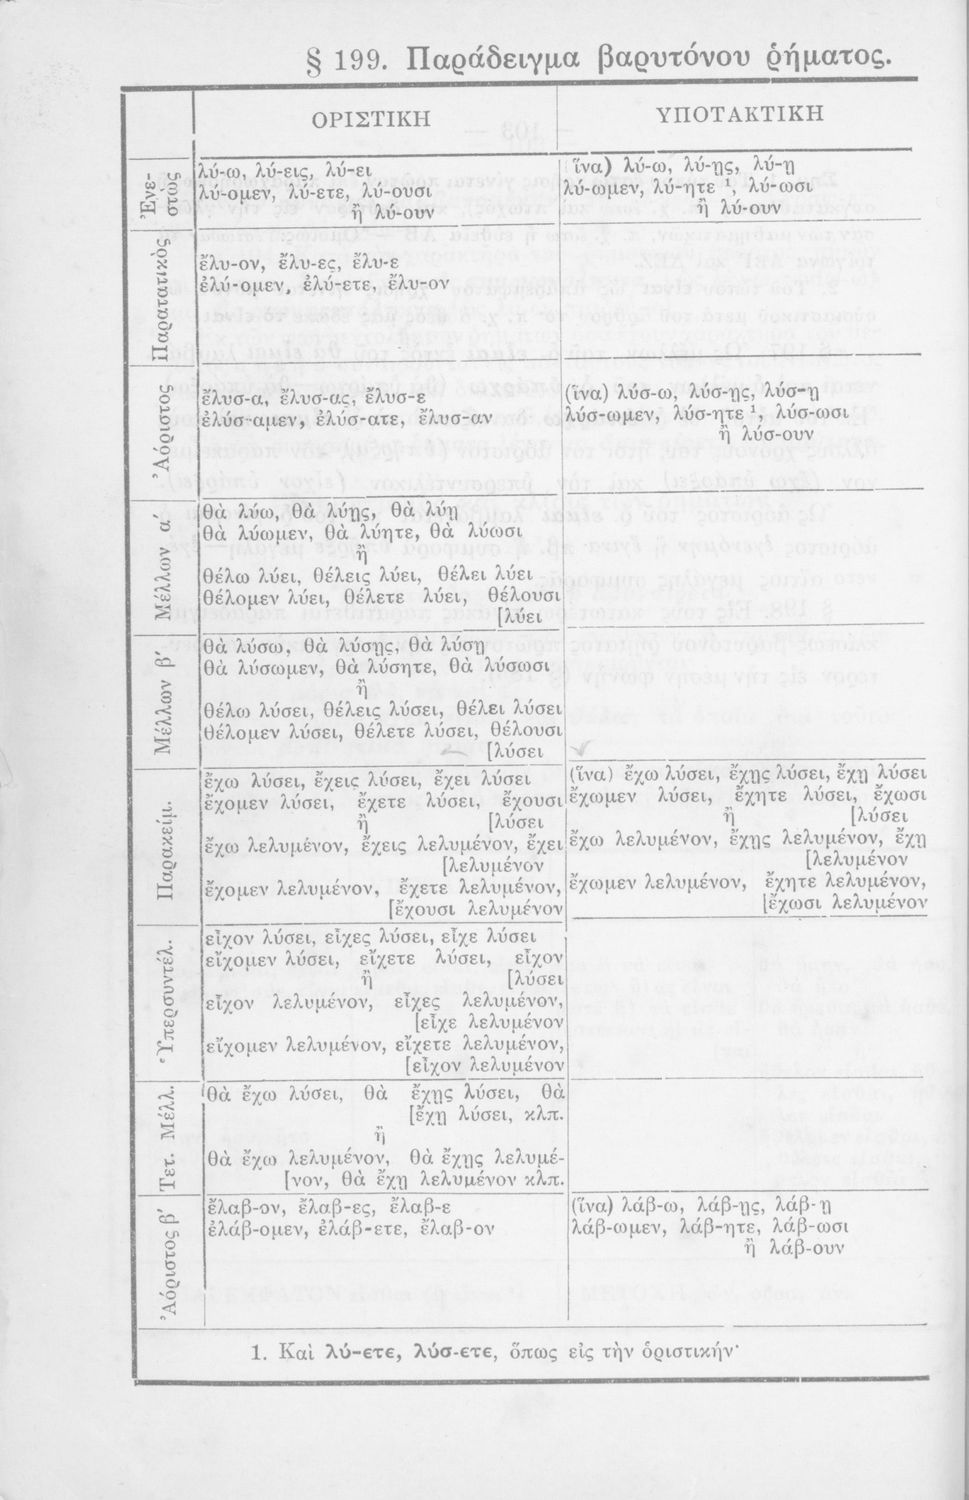 § 199. Παράδειγμα βαρυτόνου ῥήματος.
ΟΡΙΣΤΙΚΗ
ΥΠΟΤΑΚΤΙΚΗ
Ἐνε-
στώς
λύ-ω, λύ-εις, λύ-ει
λύ-ομεν, λύ-ετε, λύ-ουσι
ἢ λύ-ουν
ἵνα) λύ-ω, λύ-ῃς, λύ-ῃ
λύ-ωμεν, λύ-ητε ¹, λύ-ωσι
ἢ λύ-ουν
Παρατατικὸς
ἔλυ-ον, ἔλυ-ες, ἔλυ-ε
ἐλύ-ομεν, ἐλύ-ετε, ἔλυ-ον
Ἀόριστος
ἔλυσ-α, ἔλυσ-ας, ἔλυσ-ε
ἐλύσ-αμεν, ἐλύσ-ατε, ἔλυσ-αν
(ἵνα) λύσ-ω, λύσ-ῃς, λύσ-ῃ
λύσ-ωμεν, λύσ-ητε ¹, λύσ-ωσι
ἢ λύσ-ουν
Μέλλων α΄
θὰ λύω, θὰ λύῃς, θὰ λύῃ
θὰ λύωμεν, θὰ λύητε, θὰ λύωσι
ἢ
θέλω λύει, θέλεις λύει, θέλει λύει
θέλομεν λύει, θέλετε λύει, θέλουσι
[λύει
Μέλλων β΄
θὰ λύσω, θὰ λύσῃς, θὰ λύσῃ
θὰ λύσωμεν, θὰ λύσητε, θὰ λύσωσι
ἢ
θέλω λύσει, θέλεις λύσει, θέλει λύσει
θέλομεν λύσει, θέλετε λύσει, θέλουσι
[λύσει
Παρακείμ.
ἔχω λύσει, ἔχεις λύσει, ἔχει λύσει
ἔχομεν λύσει, ἔχετε λύσει, ἔχουσι
ἢ [λύσει
ἔχω λελυμένον, ἔχεις λελυμένον, ἔχει
[λελυμένον
ἔχομεν λελυμένον, ἔχετε λελυμένον,
[ἔχουσι λελυμένον
(ἵνα) ἔχω λύσει, ἔχῃς λύσει, ἔχῃ λύσει
ἔχωμεν λύσει, ἔχητε λύσει, ἔχωσι
ἢ [λύσει
ἔχω λελυμένον, ἔχῃς λελυμένον, ἔχῃ
[λελυμένον
ἔχωμεν λελυμένον, ἔχητε λελυμένον,
[ἔχωσι λελυμένον
Ὑπερσυντέλ.
εἶχον λύσει, εἶχες λύσει, εἶχε λύσει
εἴχομεν λύσει, εἴχετε λύσει, εἶχον
ἢ [λύσει
εἶχον λελυμένον, εἶχες λελυμένον,
[εἶχε λελυμένον
εἴχομεν λελυμένον, εἴχετε λελυμένον,
[εἶχον λελυμένον
Τετ. Μέλλ.
θὰ ἔχω λύσει, θὰ ἔχῃς λύσει, θὰ
[ἔχῃ λύσει, κλπ.
ἢ
θὰ ἔχω λελυμένον, θὰ ἔχῃς λελυμέ-
[νον, θὰ ἔχῃ λελυμένον κλπ.
Ἀόριστος β΄
ἔλαβ-ον, ἔλαβ-ες, ἔλαβ-ε
ἐλάβ-ομεν, ἐλάβ-ετε, ἔλαβ-ον
(ἵνα) λάβ-ω, λάβ-ῃς, λάβ-ῃ
λάβ-ωμεν, λάβ-ητε, λάβ-ωσι
ἢ λάβ-ουν
1. Καὶ λύ-ετε, λύσ-ετε, ὅπως εἰς τὴν ὁριστικήν·